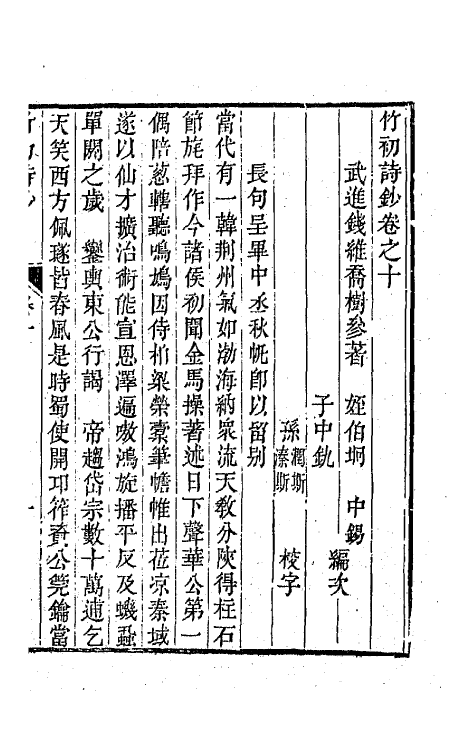 竹初詩鈔卷之十
武進錢維喬樹參著 姪伯坰 中錫 編次
子中釚
孫潤斯溱斯 校字
長句呈畢中丞秋帆卽以留别
當代有一韓荆州氣如渤海納衆流天敎分陝得柱石
節旄拜作今諸侯初聞金馬操著述日下聲華公第一
偶陪葱轄聽鳴鳩因侍柏梁榮橐筆幨帷出莅凉秦域
遂以仙才擴治術能宣恩澤遍嗷鴻旋播平反及蟣蝨
單閼之歲 鑾輿東公行謁 帝趨岱宗數十萬逋乞
天笑西方佩璲皆春風是時蜀使開邛筰賚公筦鑰當